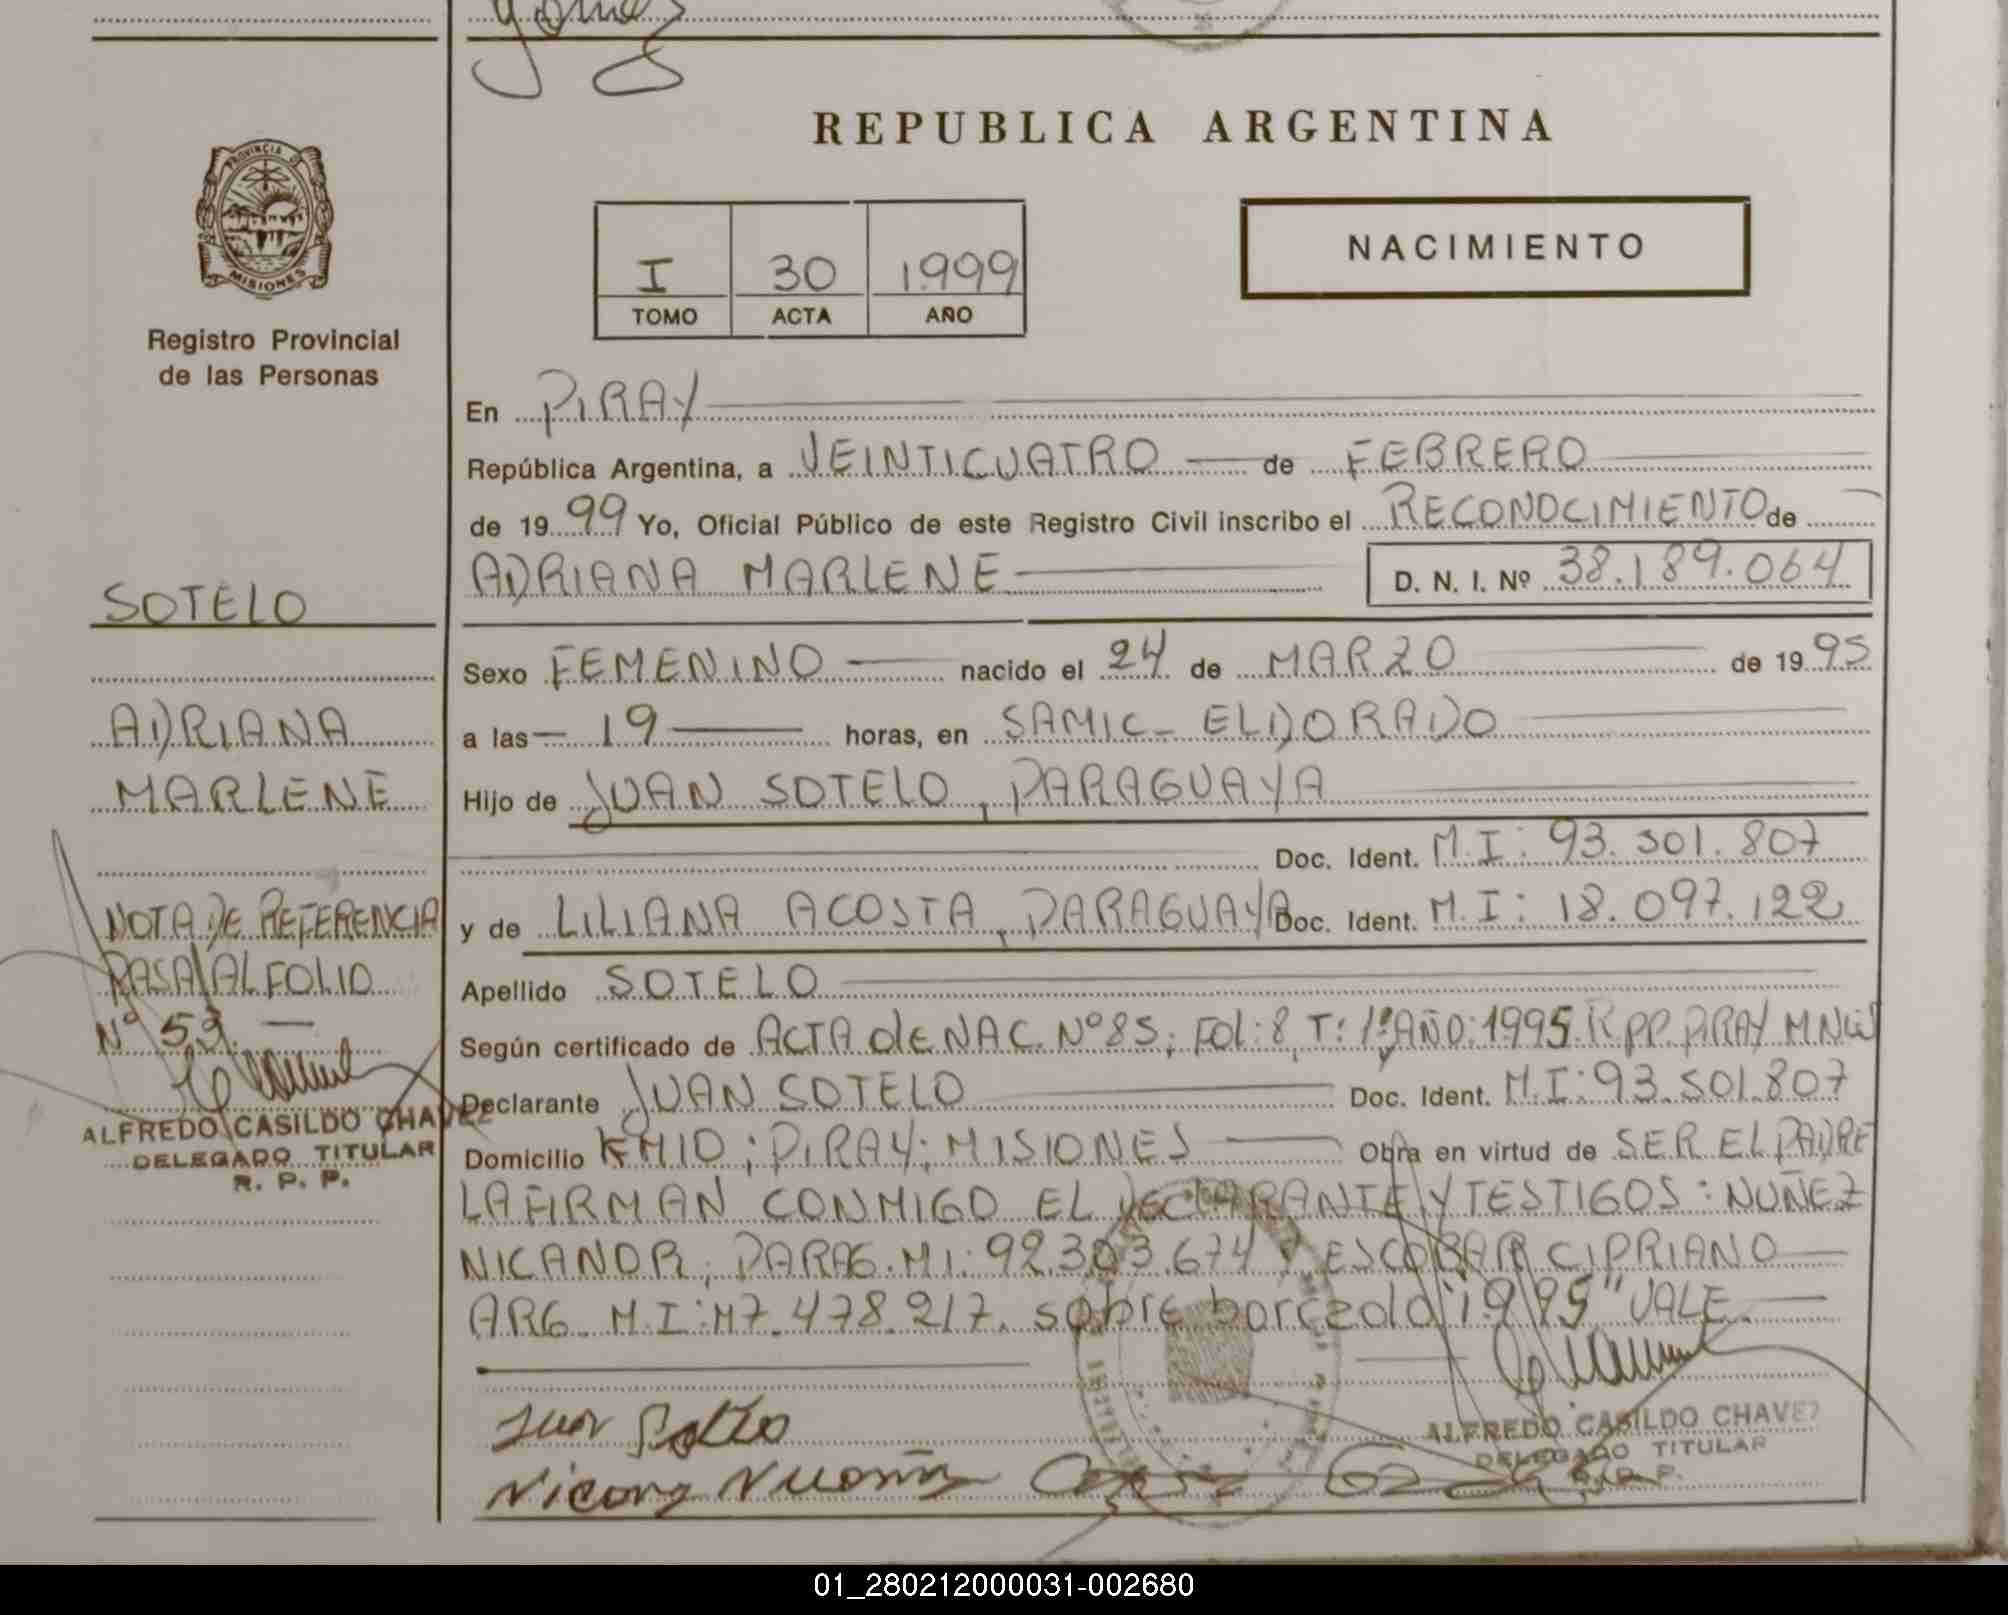 REPUBLICA ARGENTINA
PROVINCIA D
MISIONES
Registro Provincial
de las Personas
I 30 1.999
TOMO ACTA AÑO
NACIMIENTO
En PIRAY
República Argentina, a VEINTICUATRO de FEBRERO
de 19 99 Yo, Oficial Público de este Registro Civil inscribo el RECONOCIMIENTO de
ADRIANA MARLENE D. N. I. Nº 38.189.064
Sexo FEMENINO nacido el 24 de MARZO de 19 95
a las 19 horas, en SAMIC - ELDORADO
Hijo de JUAN SOTELO, PARAGUAYA
Doc. Ident. M.I: 93.501.807
y de LILIANA ACOSTA, PARAGUAYA Doc. Ident. M.I: 18.097.122
Apellido SOTELO
Según certificado de ACTA de NAC. Nº 85; FOL: 8, T: 1º, AÑO: 1995. R.P.P. PIRAY MNES
Declarante JUAN SOTELO Doc. Ident. M.I: 93.501.807
Domicilio KM10; PIRAY; MISIONES Obra en virtud de SER EL PADRE
LA FIRMAN CONMIGO EL DECLARANTE Y TESTIGOS: NUÑEZ
NICANOR, PARAG. M.I: 92.303.674 Y ESCOBAR CIPRIANO
ARG. M.I: M7.478.217. sobre borrado "1995" VALE.
Juan Sotelo
ALFREDO CASILDO CHAVEZ
DELEGADO TITULAR
R. P. P.
SOTELO
ADRIANA
MARLENE
NOTA DE REFERENCIA
PASA AL FOLIO
Nº 59.
ALFREDO CASILDO CHAVEZ
DELEGADO TITULAR
R. P. P.
01_280212000031-002680